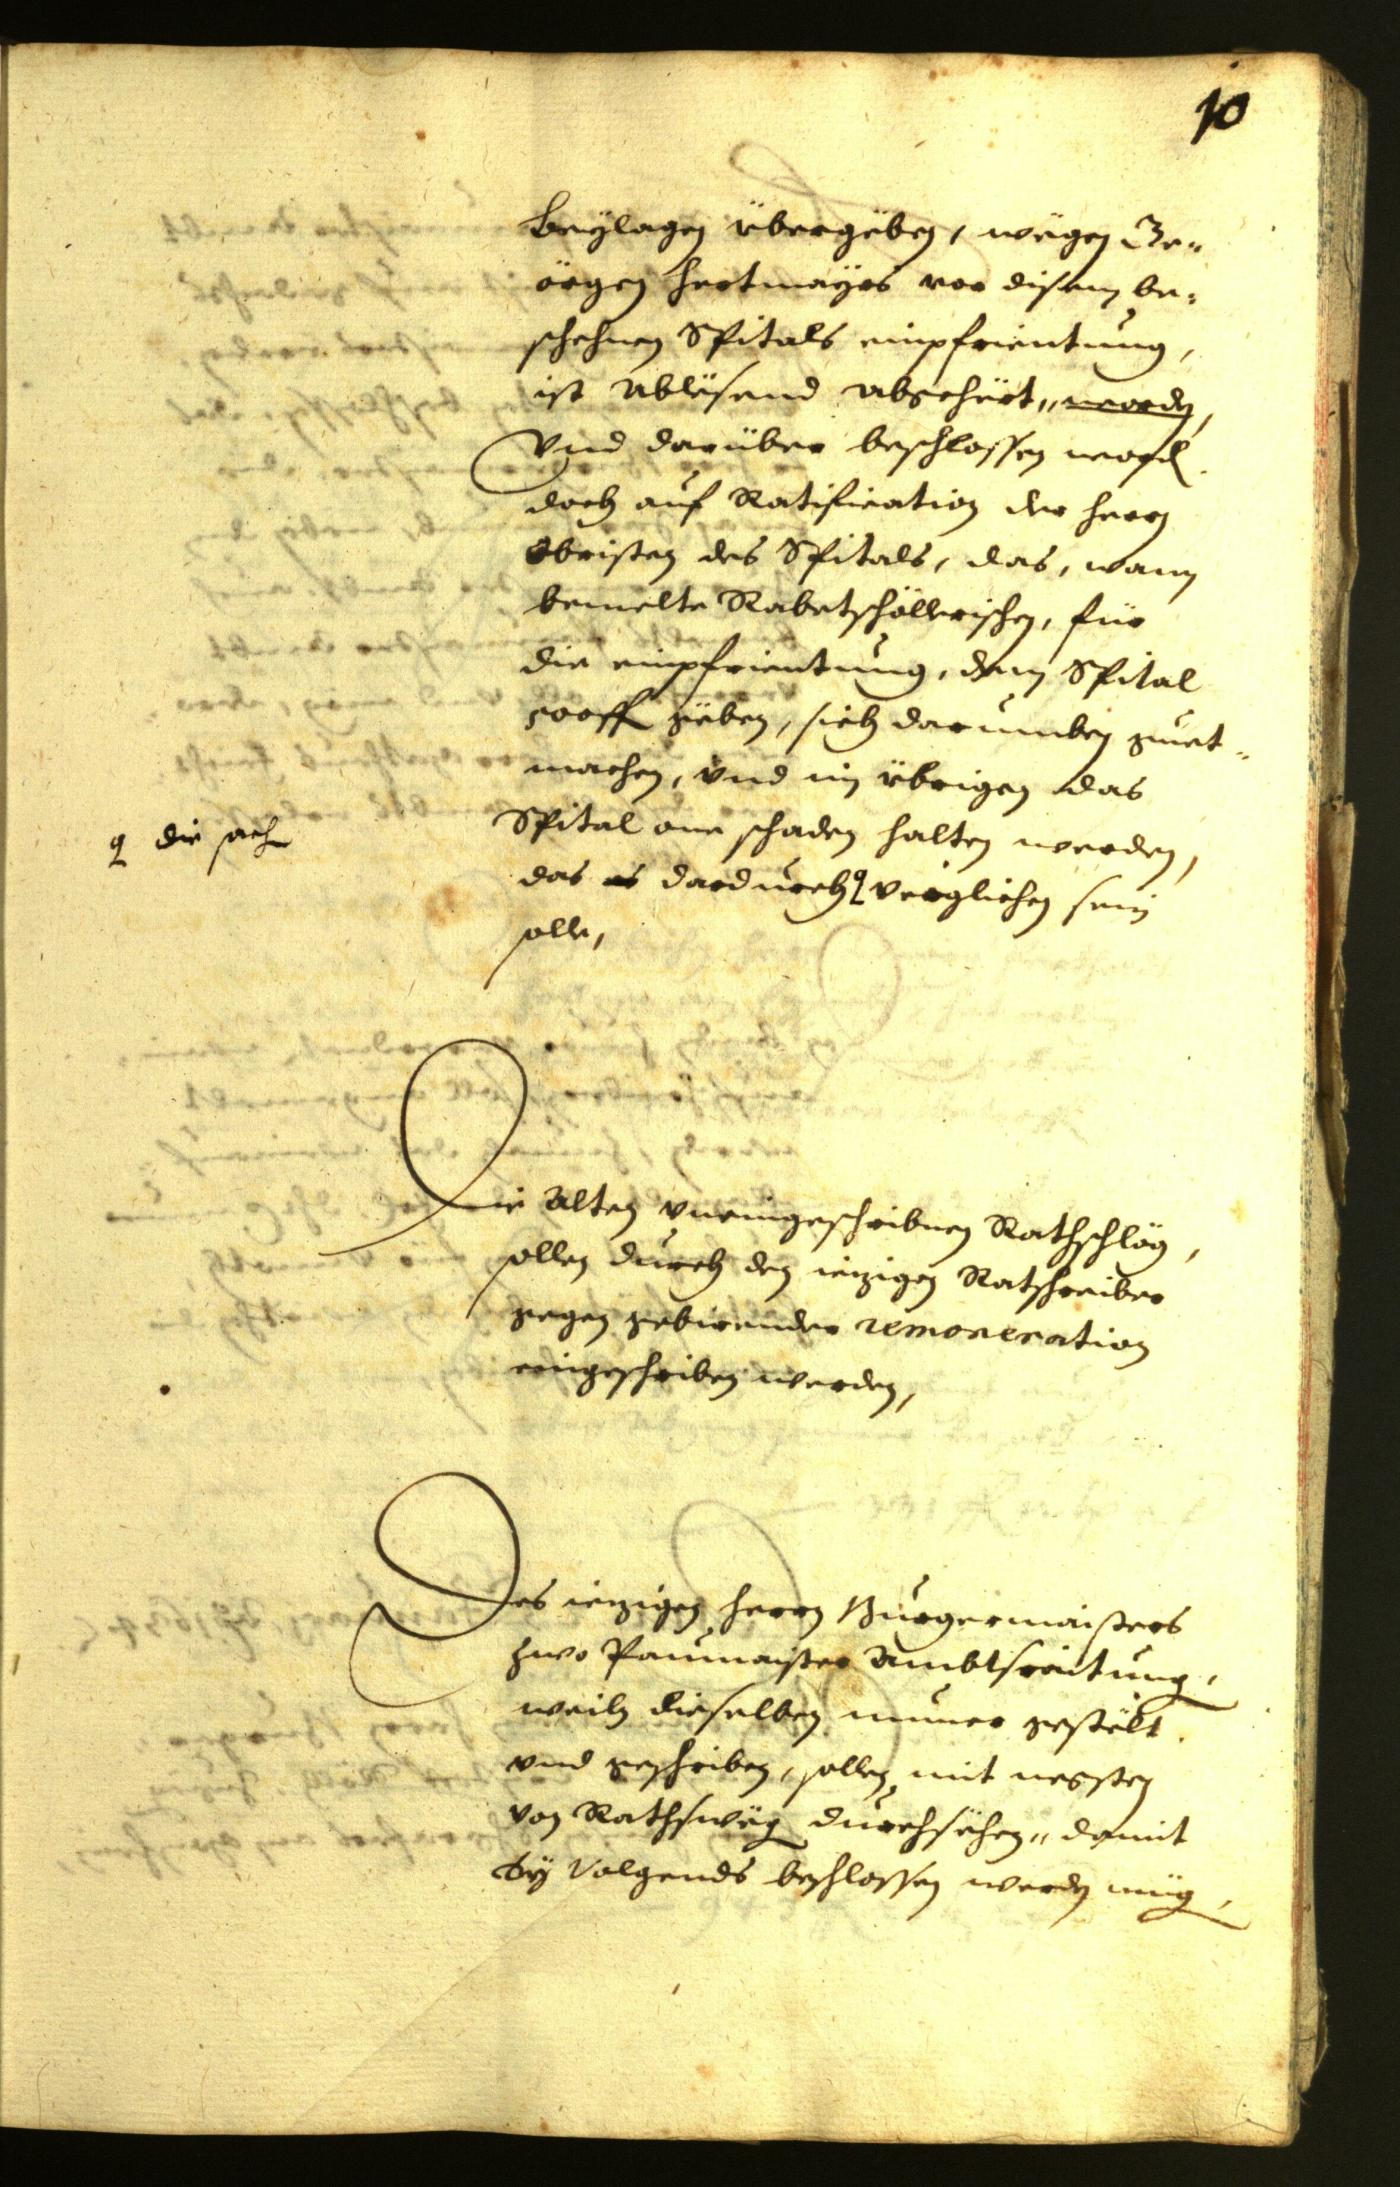 10
Beÿlagen übergëben, wëgen Ge„
örgen Hertmaÿrs vor disem be„
schehnen Spitals einpfrientung,
ist ablësend abgehört„ worden,
Vnd darüber beschlossen word.
doch auf Ratification der herrn
Obristen des Spitals, das, wann
bemelte Rabetschöllerischen, für
die einpfrientung, dem Spital
gëben, sich darumben guet„
machen, vnd im übrigen das
Spital one schaden halten werden,
das es dardurch verglichen sein
solle,
die sach
Die Alten vneingeschribnen Rathschlög,
sollen durch den iezigen Ratschreiber
gegen gebirender remoneration
eingeschriben werden,
Des iezigen herrn Burgermaisters
zwo Paumaister Ambtsraitung,
weiln dieselben nunner gestëlt
vnd geschriben, sollen mit negsten
von Rathswëg durchsëhen„ damit
Sÿ Volgends beschlossen werden müg,